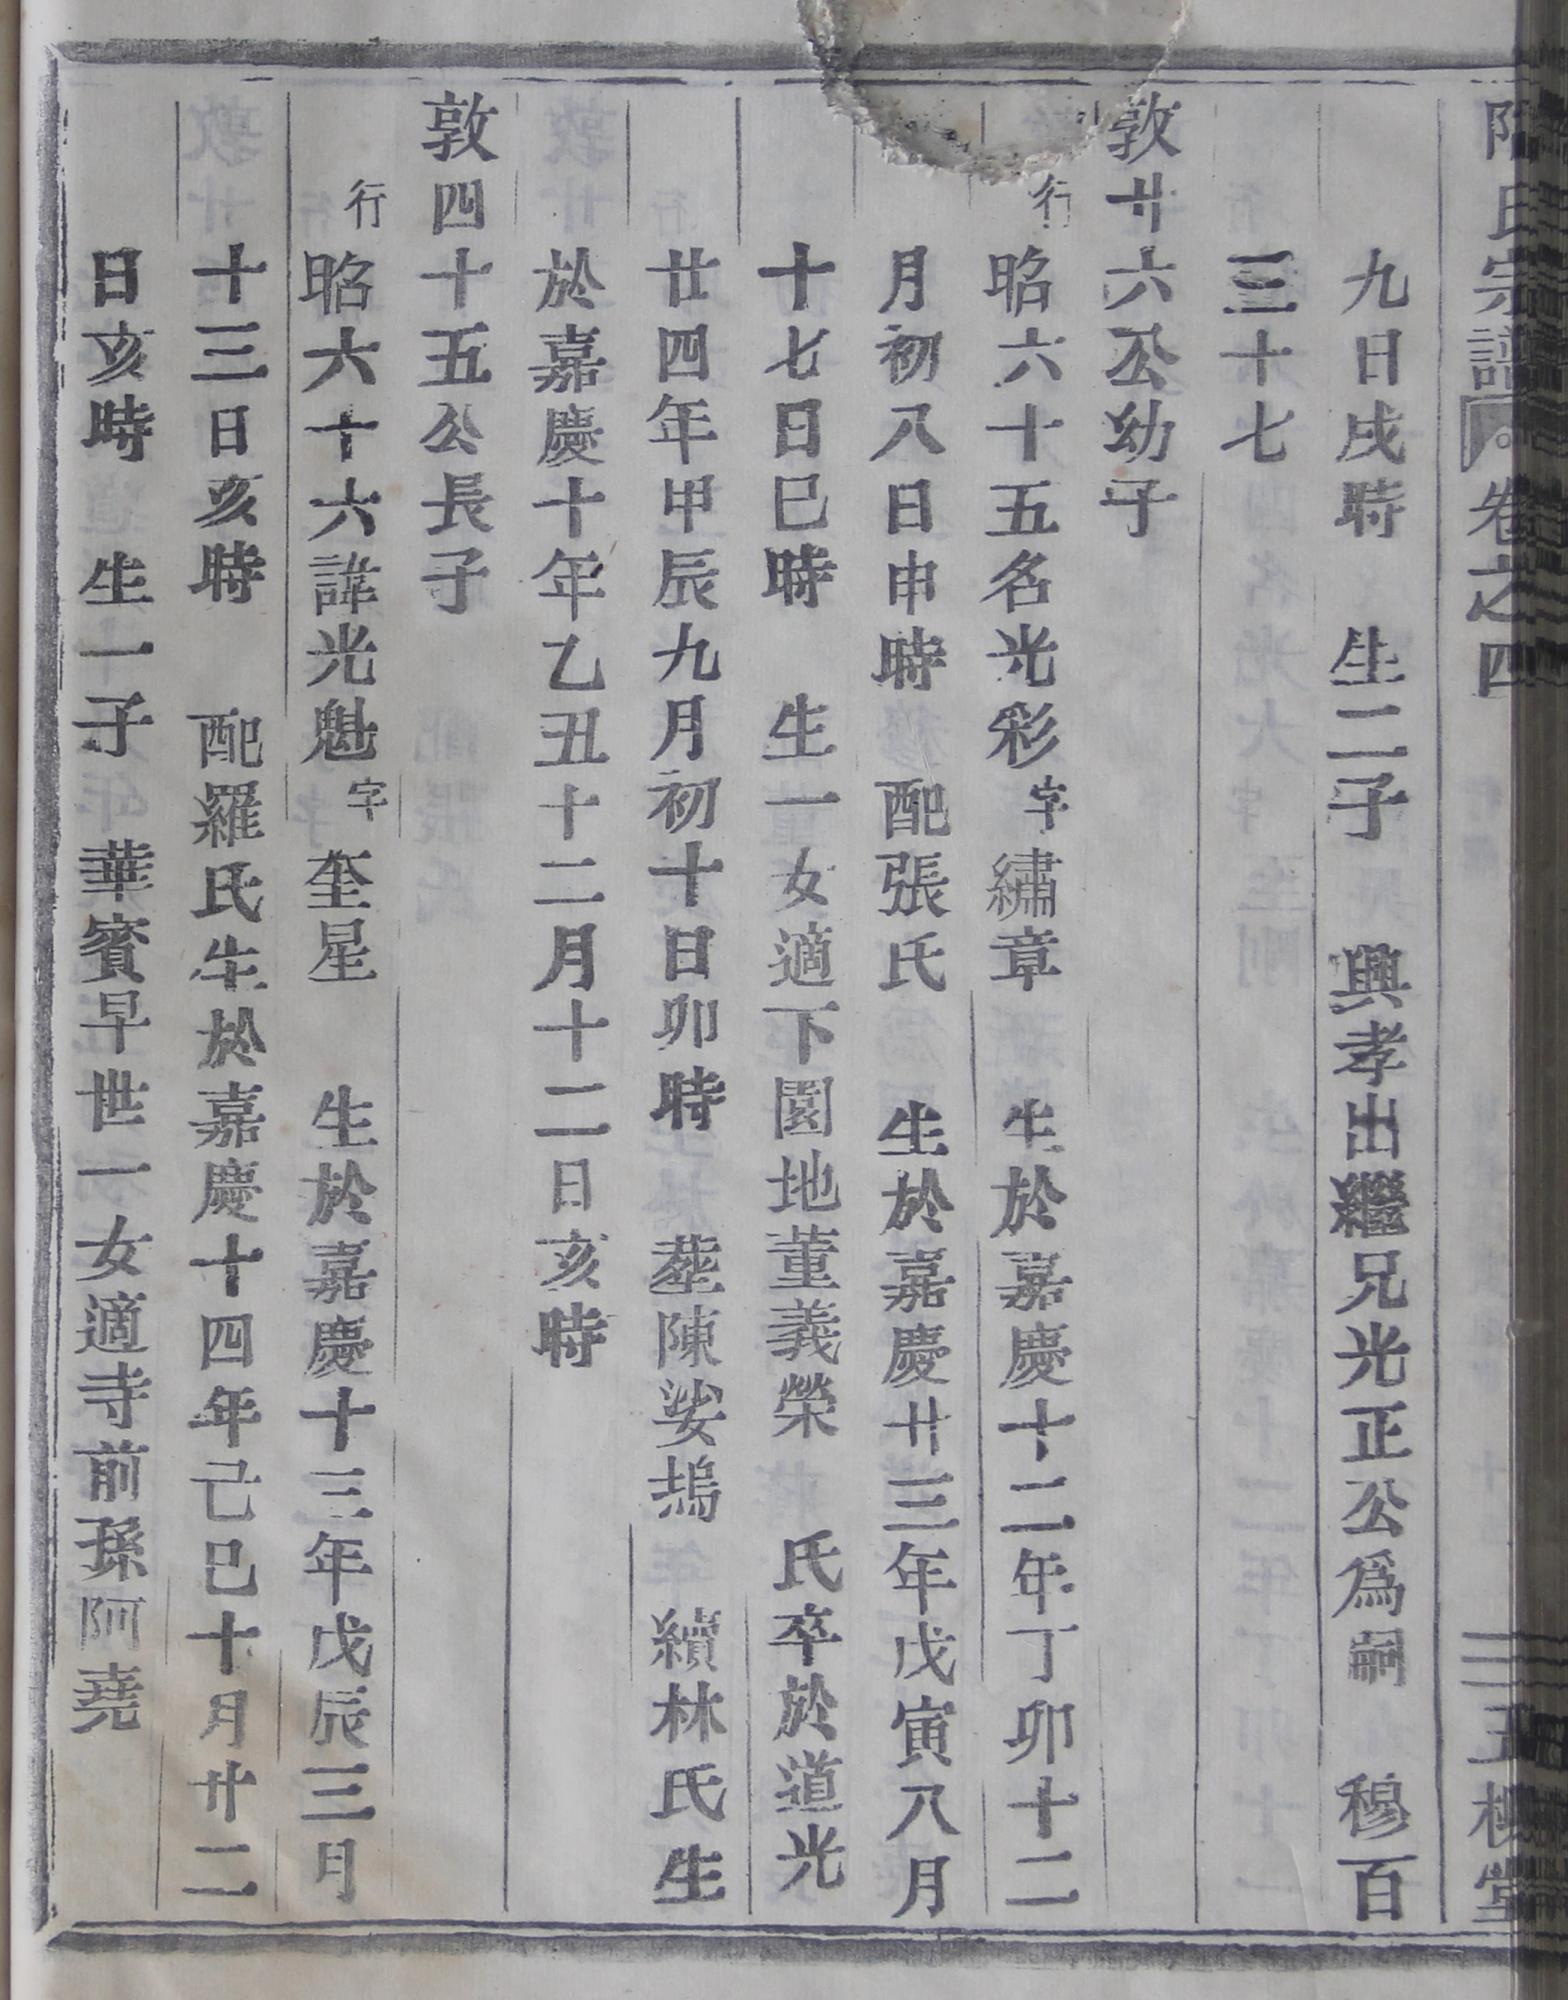 氏宗譜 卷之四
九日戌時 生二子 興孝出繼兄光正公爲嗣 穆百
三十七
敦廿六公幼子
行昭六十五名光彩字繡章 生於嘉慶十二年丁卯十二
月初八日申時 配張氏 生於嘉慶廿三年戊寅八月
十七日巳時 生一女適下園地董義榮 氏卒於道光
廿四年甲辰九月初十日卯時 塟陳娑塢 續林氏生
於嘉慶十年乙丑十二月十二日亥時
敦四十五公長子
行昭六十六諱光魁字奎星 生於嘉慶十三年戊辰三月
十三日亥時 配羅氏生於嘉慶十四年己巳十月廿二
日亥時 生一子 華賓早世一女適寺前孫阿堯